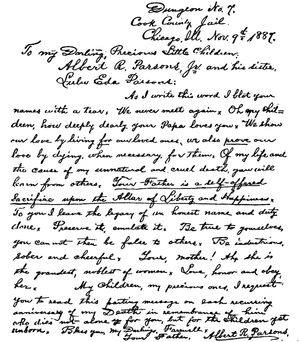 Dungeon No. 7.
Cook County Jail.
Chicago, Ill. Nov. 9th 1887.
To my Darling, Precious Little Children,
Albert R. Parsons, Jr. and his sister,
Lulu Eda Parsons:
As I write this word I blot your
names with a tear. We never meet again. Oh my chil-
dren, how deeply dearly your Papa loves you. We show
our love by living for our loved ones, we also prove our
love by dying, when necessary, for them. Of my life and
the cause of my unnatural and cruel death, you will
learn from others. Your Father is a self-offered
Sacrifice upon the Altar of Liberty and Happiness.
To you I leave the legacy of an honest name and duty
done. Preserve it, emulate it. Be true to yourselves,
you cannot then be false to others. Be industrious,
sober and cheerful. Your mother! Ah, she is
the grandest, noblest of women. Love, honor and obey
her. My children, my precious ones, I request
you to read this parting message on each recurring
anniversary of my Death in remembrance of him
who dies not alone for you, but for the children yet
unborn. Bless you, my Darlings, Farewell.
Your Father, Albert R. Parsons.